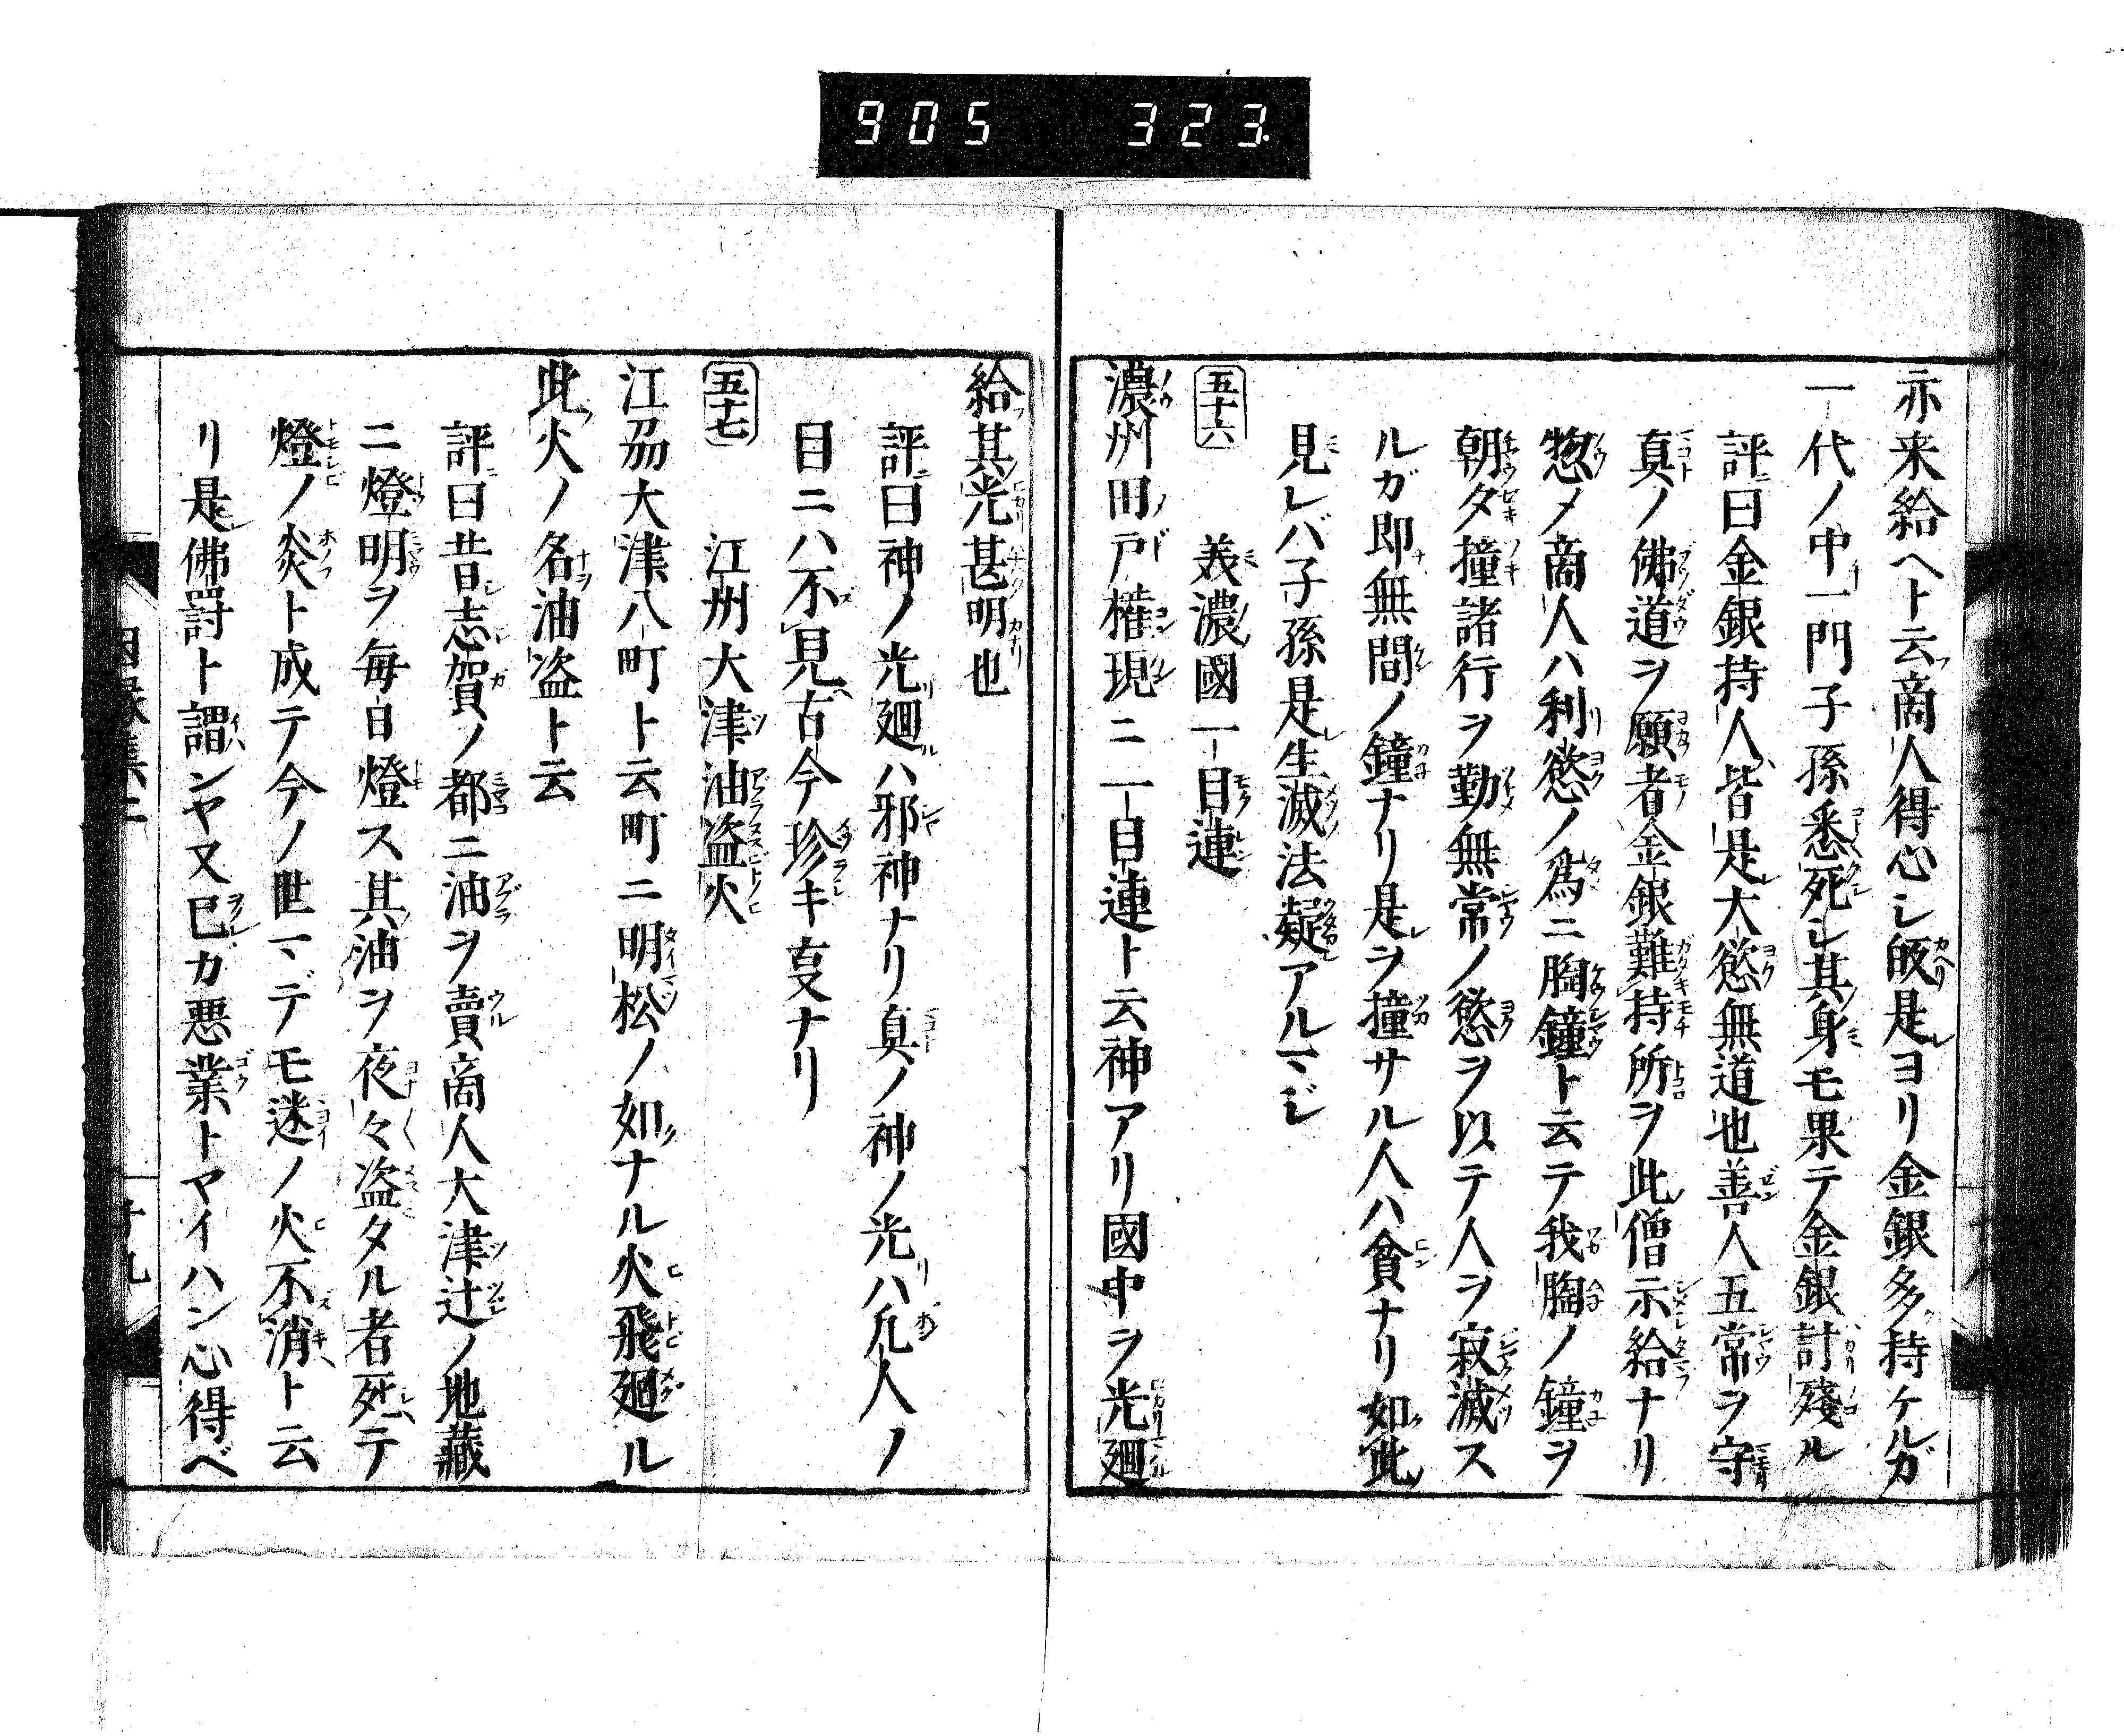 905 323
亦来給ヘト云商人得心シ皈是ヨリ金銀多持ケルガ
一代ノ中一門子孫悉死シ其身モ果テ金銀計残ル
評曰金銀持人皆是大慾無道也善人五常ヲ守
真ノ佛道ヲ願者金銀難持所ヲ此僧示給ナリ
惣〆商人ハ利慾ノ為ニ胸鐘ト云テ我胸ノ鐘ヲ
朝夕撞諸行ヲ勤無常ノ慾ヲ以テ人ヲ寂滅ス
ルガ即無間ノ鐘ナリ是ヲ撞サル人ハ貧ナリ如此
見レバ子孫是生滅法疑アルマジ
五十六 美濃國一目連
濃州田戸権現ニ一目連ト云神アリ國中ヲ光廻
給其光甚明也
評曰神ノ光廻ハ邪神ナリ真ノ神ノ光ハ凡人ノ
目ニハ不見古今珍キ叓ナリ
五十七 江州大津油盗火
江刕大津八町ト云町ニ明松ノ如ナル火飛廻ル
此火ノ名油盗ト云
評曰昔志賀ノ都ニ油ヲ賣商人大津辻ノ地藏
ニ燈明ヲ毎日燈ス其油ヲ夜々盗タル者死テ
燈ノ炎ト成テ今ノ世マデモ迷ノ火不消ト云
リ是佛罸ト謂ンヤ又己カ悪業トヤイハン心得ベ
因縁集二 十九